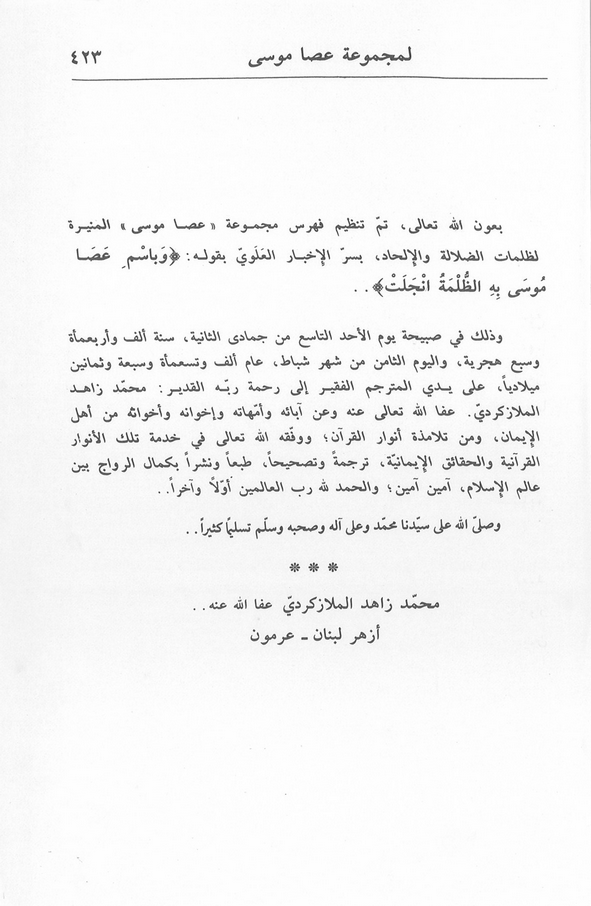 لمجموعة عصا موسى ٤٢٣
بعون الله تعالى، تمّ تنظيم فهرس مجموعة «عصا موسى» المنيرة
لظلمات الضلالة والإلحاد، بسرّ الإخبار العَلَويّ بقوله: ﴿وَبِاسْمِ عَصَا
مُوسَى بِهِ الظُّلْمَةُ انْجَلَتْ﴾..
وذلك في صبيحة يوم الأحد التاسع من جمادى الثانية، سنة ألف وأربعمأة
وسبع هجرية، واليوم الثامن من شهر شباط، عام ألف وتسعمأة وسبعة وثمانين
ميلادياً، على يدي المترجم الفقير إلى رحمة ربّه القدير: محمّد زاهد
الملازكرديّ. عفا الله تعالى عنه وعن آبائه وأمّهاته وإخوانه وأخواته من أهل
الإيمان، ومن تلامذة أنوار القرآن؛ ووفّقه الله تعالى في خدمة تلك الأنوار
القرآنية والحقائق الإيمانيّة، ترجمةً وتصحيحاً، طبعاً ونشراً بكمال الرواج بين
عالم الإسلام، آمين آمين؛ والحمد لله رب العالمين أوّلاً وآخراً..
وصلّى الله على سيّدنا محمّد وعلى آله وصحبه وسلّم تسليماً كثيراً..
* * *
محمّد زاهد الملازكرديّ عفا الله عنه..
أزهر لبنان ـ عرمون